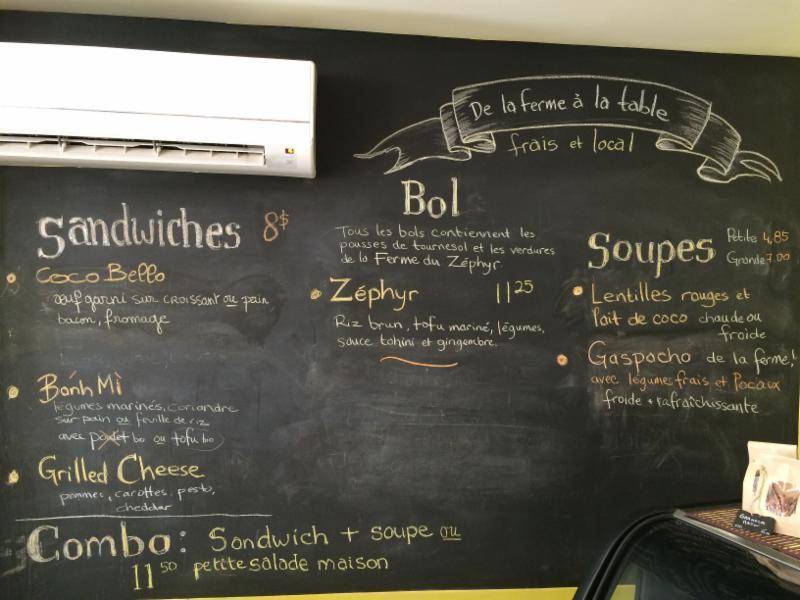 De la ferme à la table
frais et local
Sandwiches 8$
Coco Bello
œuf garni sur croissant ou pain
bacon, fromage
Bánh Mì
légumes marinés, coriandre
sur pain ou feuille de riz
avec poulet bio ou tofu bio
Grilled Cheese
pommes, carottes, pesto,
cheddar
Combo: Sandwich + soupe ou
11 50 petite salade maison
Bol
Tous les bols contiennent les
pousses de tournesol et les verdures
de la Ferme du Zéphyr.
Zéphyr 11 25
Riz brun, tofu mariné, légumes,
sauce tahini et gingembre.
Soupes
Petite 4,85
Grande 7.00
Lentilles rouges et
lait de coco chaude ou
froide
Gaspacho de la ferme!
avec légumes frais et locaux
froide + rafraîchissante